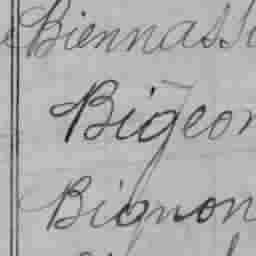 Biennass
Bigeon
Bignon